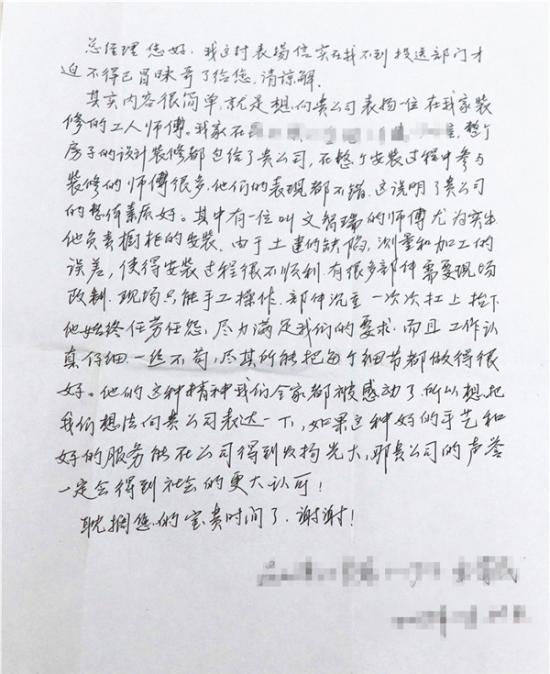 总经理您好，我这封表扬信实在找不到投送部门才
迫不得已冒昧寄了给您，请谅解。
其实内容很简单，就是想向贵公司表扬一位在我家装
修的工人师傅。我家在
整个
房子的设计装修都包给了贵公司，在整个安装过程中参与
装修的师傅很多，他们的表现都不错，这说明了贵公司
的整体素质好。其中有一位叫文智瑞的师傅尤为突出
他负责橱柜的安装，由于土建的缺陷，测量和加工的
误差，使得安装过程很不顺利，有很多部件需要现场
改制，现场只能手工操作，部件沉重一次次扛上抬下
他始终任劳任怨，尽力满足我们的要求，而且工作认
真仔细一丝不苟，尽其所能把每个细节都做得很
好。他的这种精神我们全家都被感动了，所以想
我们想法向贵公司表达一下，如果这种好的手艺和
好的服务能在公司得到发扬光大，那贵公司的声誉
一定会得到社会的更大认可！
耽搁您的宝贵时间了，谢谢！